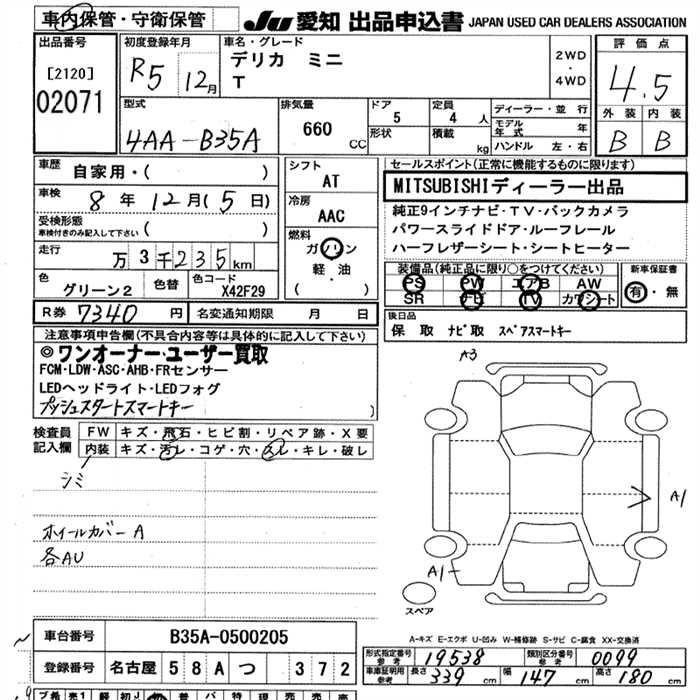 車内保管・守衛保管
JU 愛知 出品申込書 JAPAN USED CAR DEALERS ASSOCIATION
出品番号
[2120]
02071
初度登録年月
R5 12月
車名・グレード
デリカ ミニ
T
2WD
・
4WD
評価点
4.5
外装 内装
B B
型式
4AA-B35A
排気量
660 CC
ドア
5
形状
定員
4 人
積載
kg
ディーラー・並行
モデル年式 年
ハンドル 左・右
車歴
自家用・( )
車検
8年12月(5日)
受検形態
車検付きのみ記入して下さい ( )
走行
万3千235km
色
グリーン2
色替
色コード
X42F29
シフト
AT
冷房
AAC
燃料
ガソリン
軽・油
( )
セールスポイント(正常に機能するものに限ります)
MITSUBISHIディーラー出品
純正9インチナビ・TV・バックカメラ
パワースライドドア・ルーフレール
ハーフレザーシート・シートヒーター
装備品(純正品に限り○をつけてください)
PS PW エアB AW
SR ナビ TV カワシート
新車保証書
有・無
R券 7340 円
名変通知期限 月 日
後日品
保 取 ナビ取 スペアスマートキー
注意事項申告欄(不具合内容等は具体的に記入して下さい)
◎ワンオーナー・ユーザー買取
FCM・LDW・ASC・AHB・FRセンサー
LEDヘッドライト・LEDフォグ
プッシュスタートスマートキー
)
検査員記入欄
FW キズ・飛石・ヒビ割・リペア跡・X要
内装 キズ・汚レ・コゲ・穴・スレ・キレ・破レ
シミ
ホイールカバーA
各AU
A3
A1
A1
スペア
A-キズ E-エクボ U-凹み W-補修跡 S-サビ C-腐食 XX-交換済
車台番号
B35A-0500205
登録番号 名古屋 58Aつ 372
形式指定番号 参考 19538
類別区分番号 参考 0099
車庫証明用 参考 長さ 339 幅 147 高さ 180